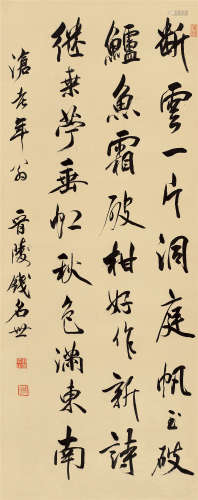 断雲一片洞庭帆玉破
鱸魚霜破柑好作新詩
継桒苧垂虹秋色滿東南
滄老年翁 晋陵錢名世